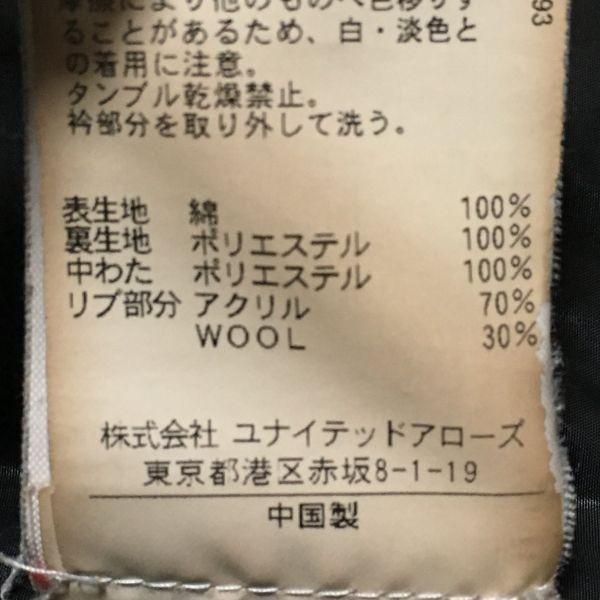 摩擦により他のものへ色移りす
ることがあるため、白・淡色と
の着用に注意。
タンブル乾燥禁止。
衿部分を取り外して洗う。
表生地 綿 100%
裏生地 ポリエステル 100%
中わた ポリエステル 100%
リブ部分 アクリル 70%
WOOL 30%
株式会社 ユナイテッドアローズ
東京都港区赤坂8-1-19
中国製
93